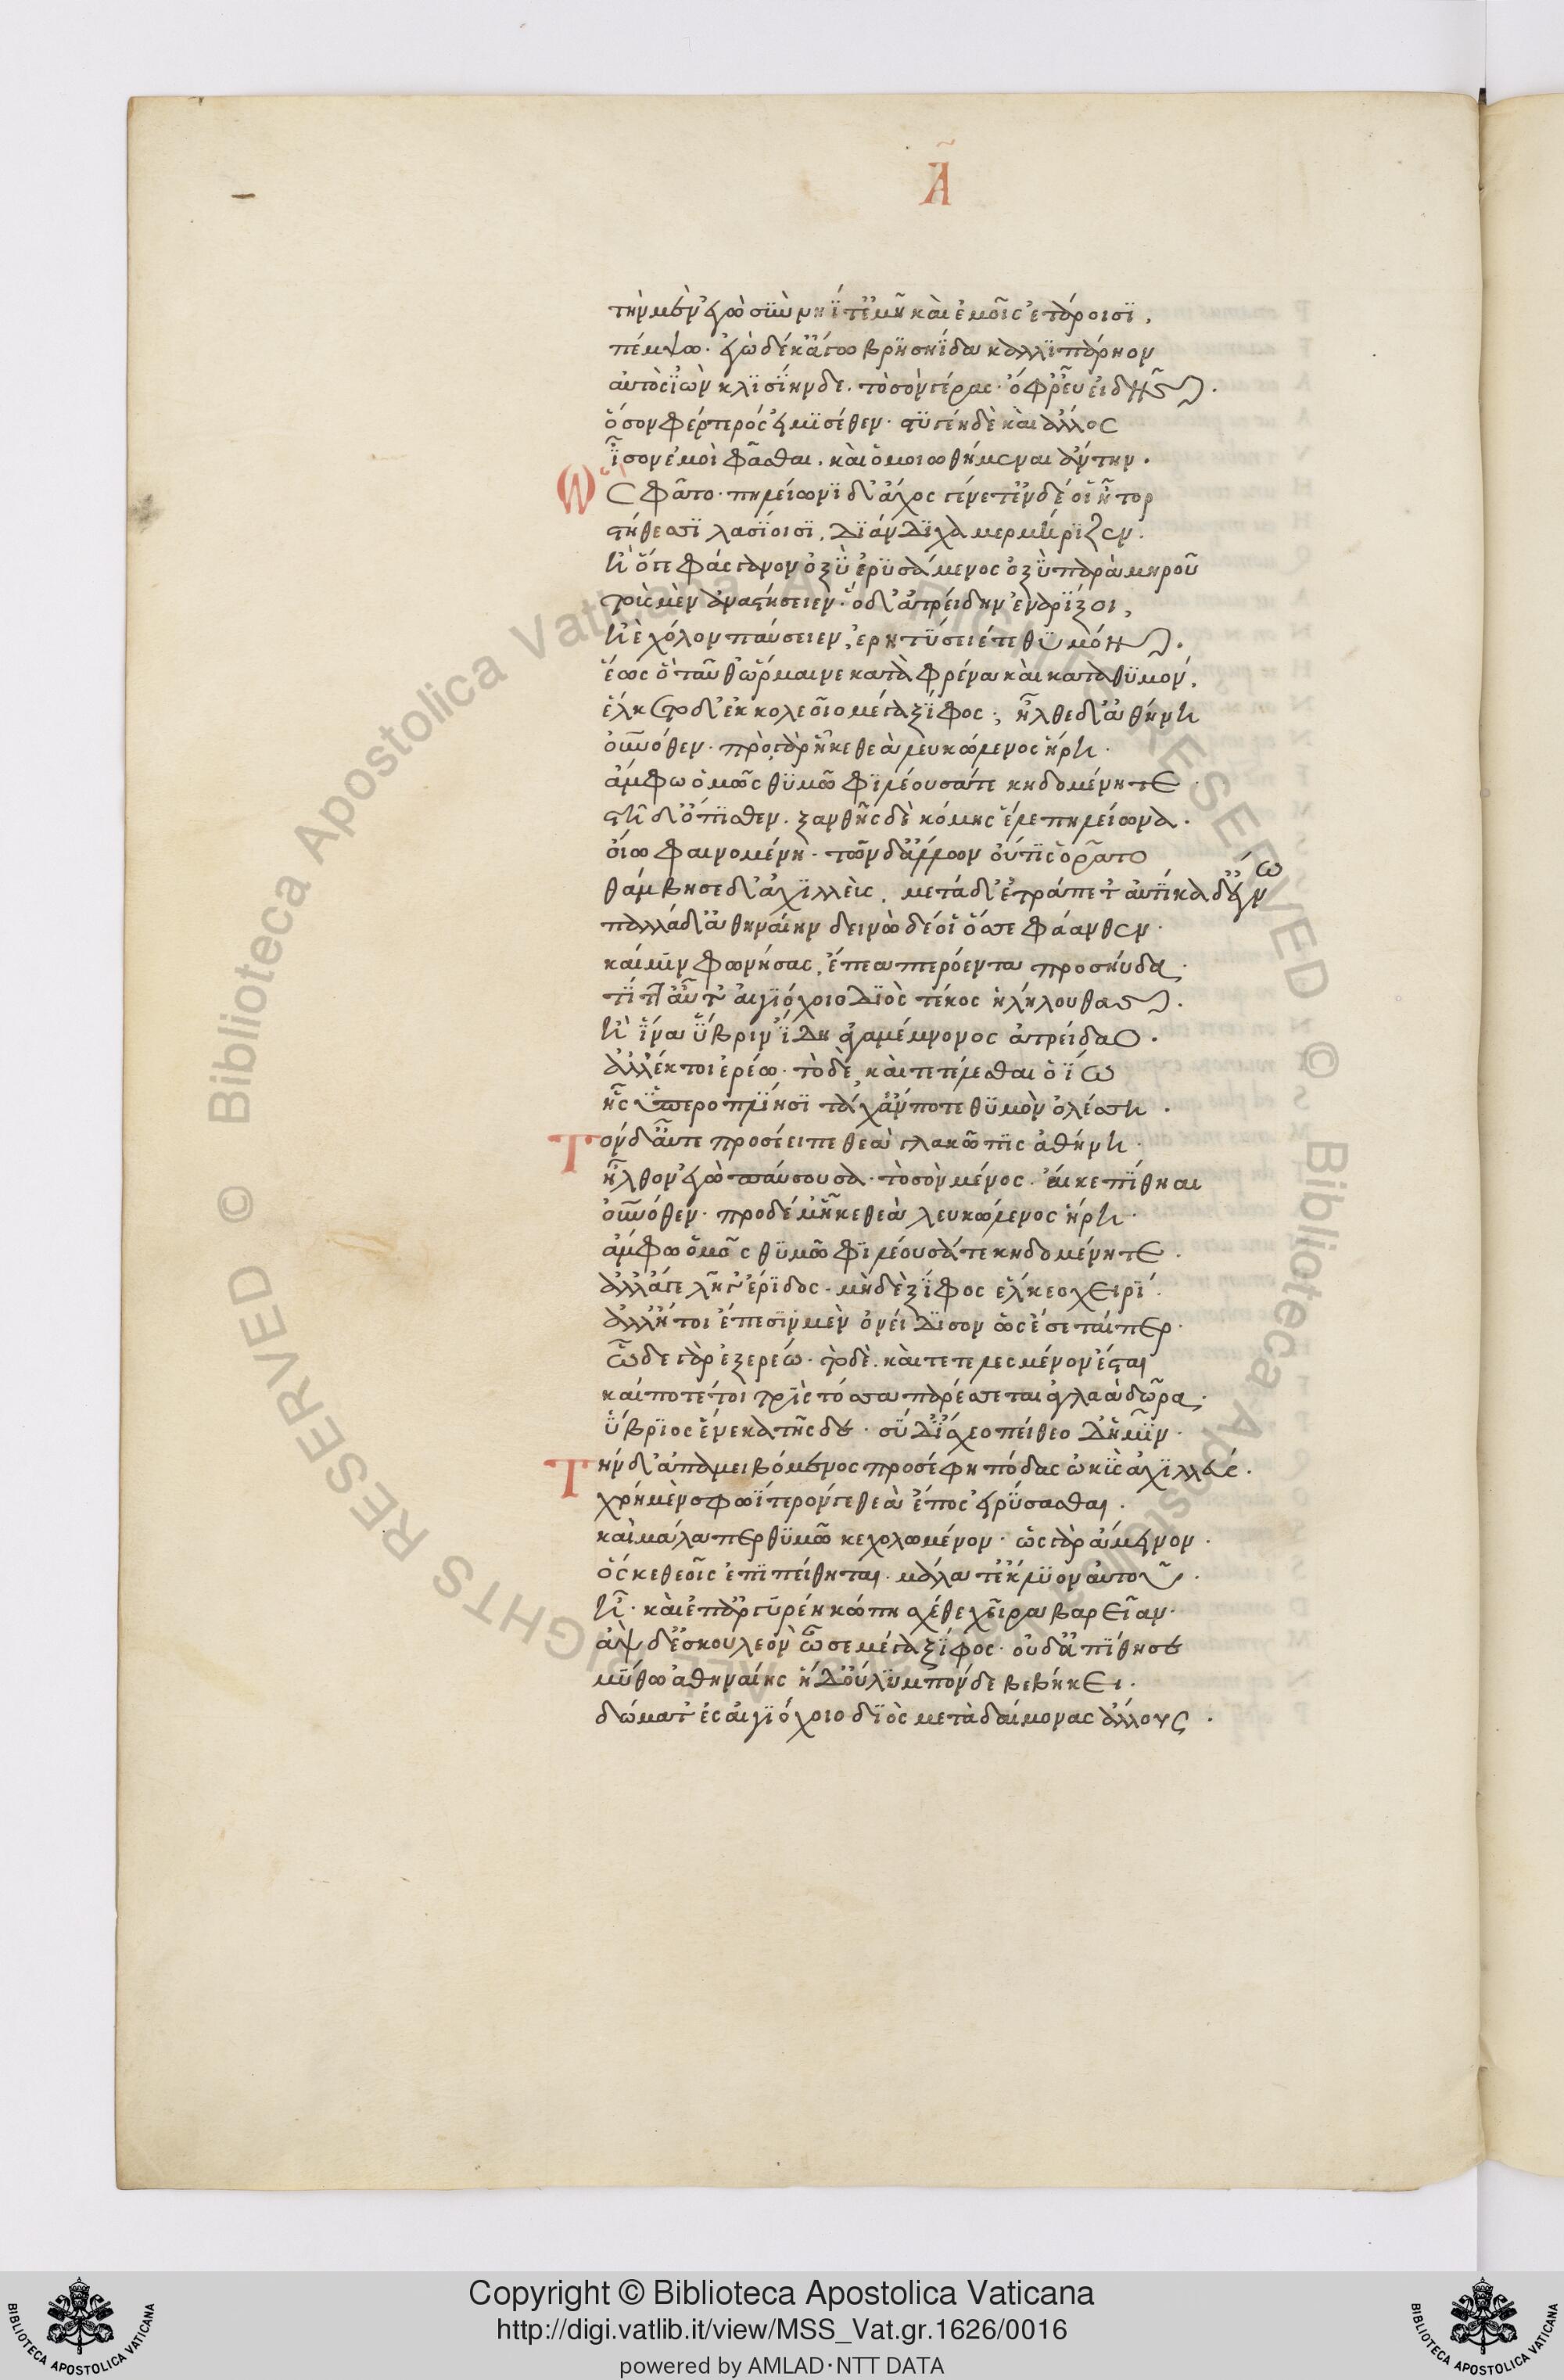 Ã
τὴν μὲν ἐγὼ σὺν νηΐ τ' ἐμῇ καὶ ἐμοῖς ἑτάροισϊ,
πέμψω. ἐγὼ δέ κ' ἄγω βρϊσηΐδα καλλϊπάρηον
αὐτὸς ἰὼν κλϊσΐηνδε. τὸ σὸν γέρας. ὄφρ' εὖ εἰδῇς.
ὅσον φέρτερός εἰμϊ σέθεν. στϋγέηδὲ καὶ ἄλλος
ἶσον ἐμοὶ φᾶσθαι. καὶ ὁμοιωθήμεναι ἄντην.
Ὣς φᾶτο. πηλείωνϊ δ' ἄχος γένετ' ἐν δέ οἱ ἦτορ
στήθεσσϊ λασΐοισϊ. δϊάνδϊχα μερμήρϊξεν.
ἢ ὅγε φάσγανον ὀξὺ ἐρϋσάμενος ὀξὺ παρὰ μηροῦ
τοὺς μὲν ἀναστήσειεν. ὁ δ' ἀτρείδην ἐναρΐζοι,
ἠὲ χόλον παύσειεν, ἐρητΰσειέ τε θϋμόν.
ἕως ὁ ταῦθ' ὥρμαινε κατὰ φρένα καὶ κατὰ θϋμόν,
ἕλκετο δ' ἐκ κολεοῖο μέγα ξΐφος. ἦλθε δ' ἀθήνη
οὐρανόθεν. πρὸ γὰρ ἧκε θεὰ λευκώλενος ἥρη.
ἄμφω ὁμῶς θϋμῶ φϊλέουσά τε κηδομένη τε
στῆ δ' ὄπϊθεν. ξανθῆς δὲ κόμης ἕλε πηλείωνα.
οἴω φαινομένη. τῶν δ' ἄλλων οὔτις ὁρᾶτο
θάμβησε δ' ἀχϊλλεὺς. μετὰ δ' ἐτράπετ' αὐτΐκα δ' ἔγν
ω
παλλάδ' ἀθηναίην δεινὼ δέ οἱ ὄσσε φάανθεν.
καί μϊν φωνήσας, ἔπεα πτερόεντα προσηύδα.
τΐ τ' αὖτ' αἰγϊόχοιο δϊὸς τέκος ἠλήλουθας.
ἢ ἵνα ὕβριν ἴδη ἀγαμέμνονος ἀτρείδαο.
ἀλλ' ἔκ τοι ἐρέω. τὸ δὲ καὶ τετελέσθαι ὀΐω
ἧς ὑπεροπλΐησϊ τάχ' ἄν ποτε θϋμὸν ὀλέσση.
Τὸν δ' αὖτε προσέειπε θεὰ γλακῶπϊς ἀθήνη.
ἦλθον ἐγὼ παύσουσα. τὸ σὸν μένος. αἴ κε πΐθηαι
οὐρανόθεν. προ δέ μ' ἧκε θεὰ λευκώλενος ἥρη.
ἄμφω ὁμῶς θϋμῶ φϊλέουσά τε κηδομένη τε.
ἀλλ' ἄγε λῆγ' ἔρϊδος. μηδὲ ξΐφος ἕλκεο χειρΐ.
ἀλλ' ἤτοι ἔπεσϊν μὲν ὀνείδϊσον ὡς ἔσεταί περ.
ὧδε γὰρ ἐξερέω. τὸ δὲ. καὶ τετελεσμένον ἔσται
καί ποτέ τοι τρϊς τόσσα παρέσσεται ἀγλαὰ δῶρα.
ὕβρϊος ἕνεκα τῆσδε. σὺ δ' ἴσχεο πείθεο δ' ἡμῖν.
Τὴν δ' ἀπαμειβόμενος προσέφη πόδας ὠκὺς ἀχϊλλεύς.
χρὴ μὲν σφωΐτερόν γε θεὰ ἔπος εἰρΰσασθαι.
καὶ μάλα περ θϋμῶ κεχολωμένον. ὣς γὰρ ἄμεινον.
ὅς κε θεοῖς ἐπϊπείθηται. μάλα τ' ἔκλϋον αὐτοῦ.
ἦ. καὶ ἐπ' ἀργυρέη κώπη σχέθε χεῖρα βαρεῖαν.
ἂψ δ' ἐς κουλεὸν ὦσε μέγα ξΐφος. οὐδ' ἀπΐθησε
μύθω ἀθηναίης ἡ δ' οὔλϋμπόνδε βεβήκει.
δώματ' ἐς αἰγϊόχοιο δϊὸς μετὰ δαίμονας ἄλλους.
Copyright © Biblioteca Apostolica Vaticana
http://digi.vatlib.it/view/MSS_Vat.gr.1626/0016
powered by AMLAD·NTT DATA
BIBLIOTECA APOSTOLICA VATICANA
BIBLIOTECA APOSTOLICA VATICANA
© Biblioteca Apostolica Vaticana ALL RIGHTS RESERVED
© Biblioteca Apostolica Vaticana ALL RIGHTS RESERVED